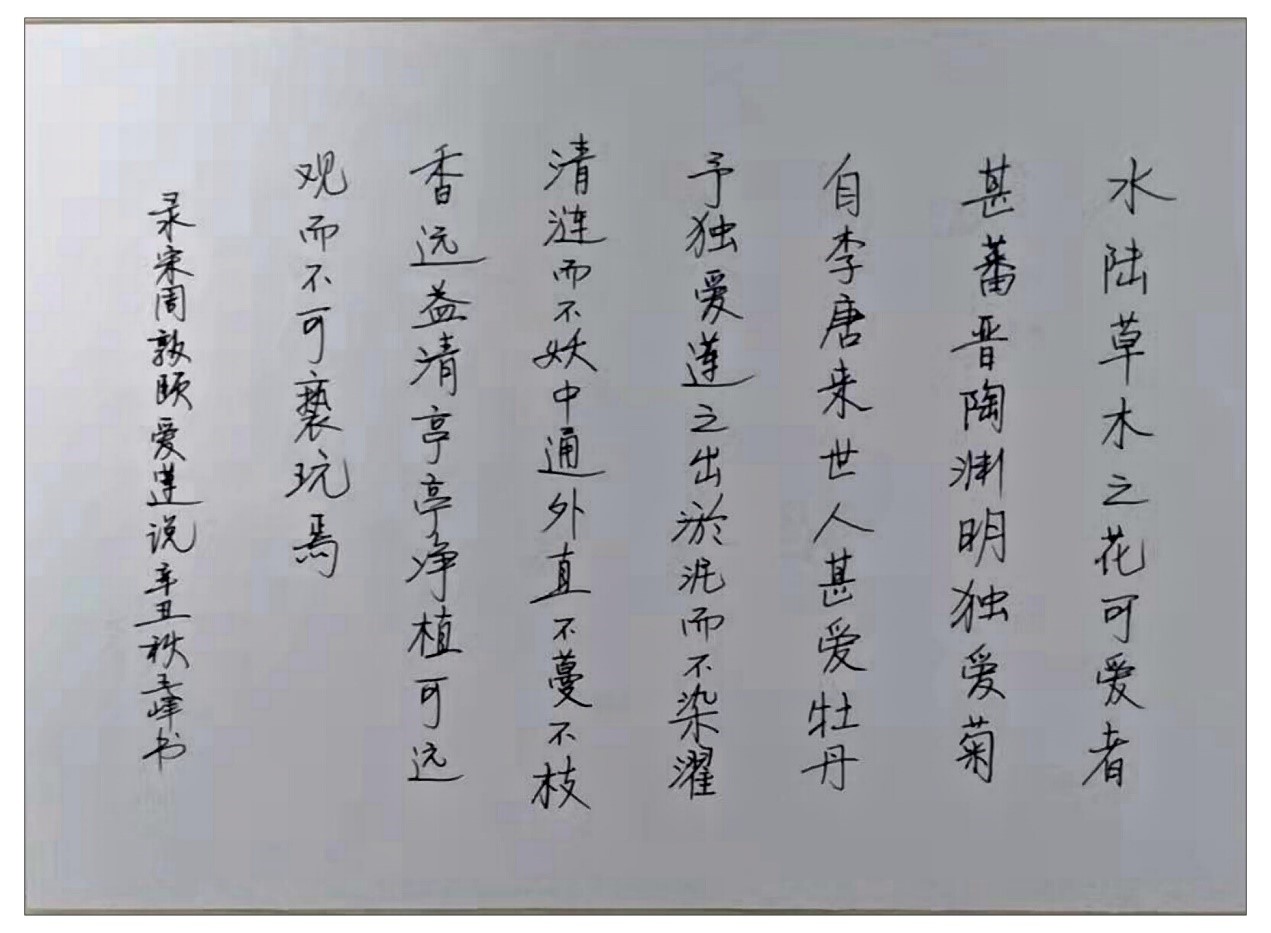 水陆草木之花可爱者
甚蕃晋陶渊明独爱菊
自李唐来世人甚爱牡丹
予独爱莲之出淤泥而不染濯
清涟而不妖中通外直不蔓不枝
香远益清亭亭净植可远
观而不可亵玩焉
录宋周敦颐爱莲说辛丑秋玉峰书